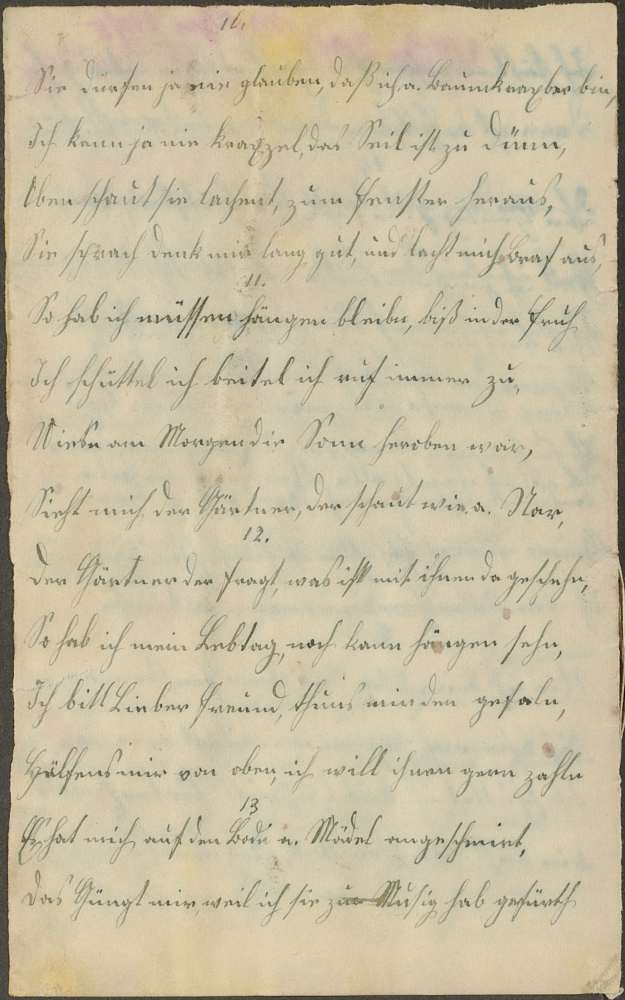 10.
Sie dürfen ja nie glauben, daß ich a. Baumkraxler bin,
Ich kann ja nie kraxzel, das Seil ist zu dünn,
Oben schaut sie lachent, zum Fenster heraus,
Sie sprach denk mir lang gut, und lacht mich braf aus,
11.
So hab ich müssen hängen bleibn, biß in der Fruh
Ich schüttel ich beitel ich ruf immer zu,
Wiebn am Morgen die Sonn heroben war,
Sieht mich der Gärtner, der schaut wie a. Nar,
12.
Der Gärtner der fragt, was ist mit ihnen da geschehn,
So hab ich mein Lebtag, noch kann hängen sehn,
Ich bitt Lieber Freund, thuns mir den gefaln,
Hälfens mir von oben, ich will ihnen gern zahln
13
Es hat mich auf den Bode a. Mädel angeschmirt,
Das Güngt mir, weil ich sie zu Musig hab gefürth